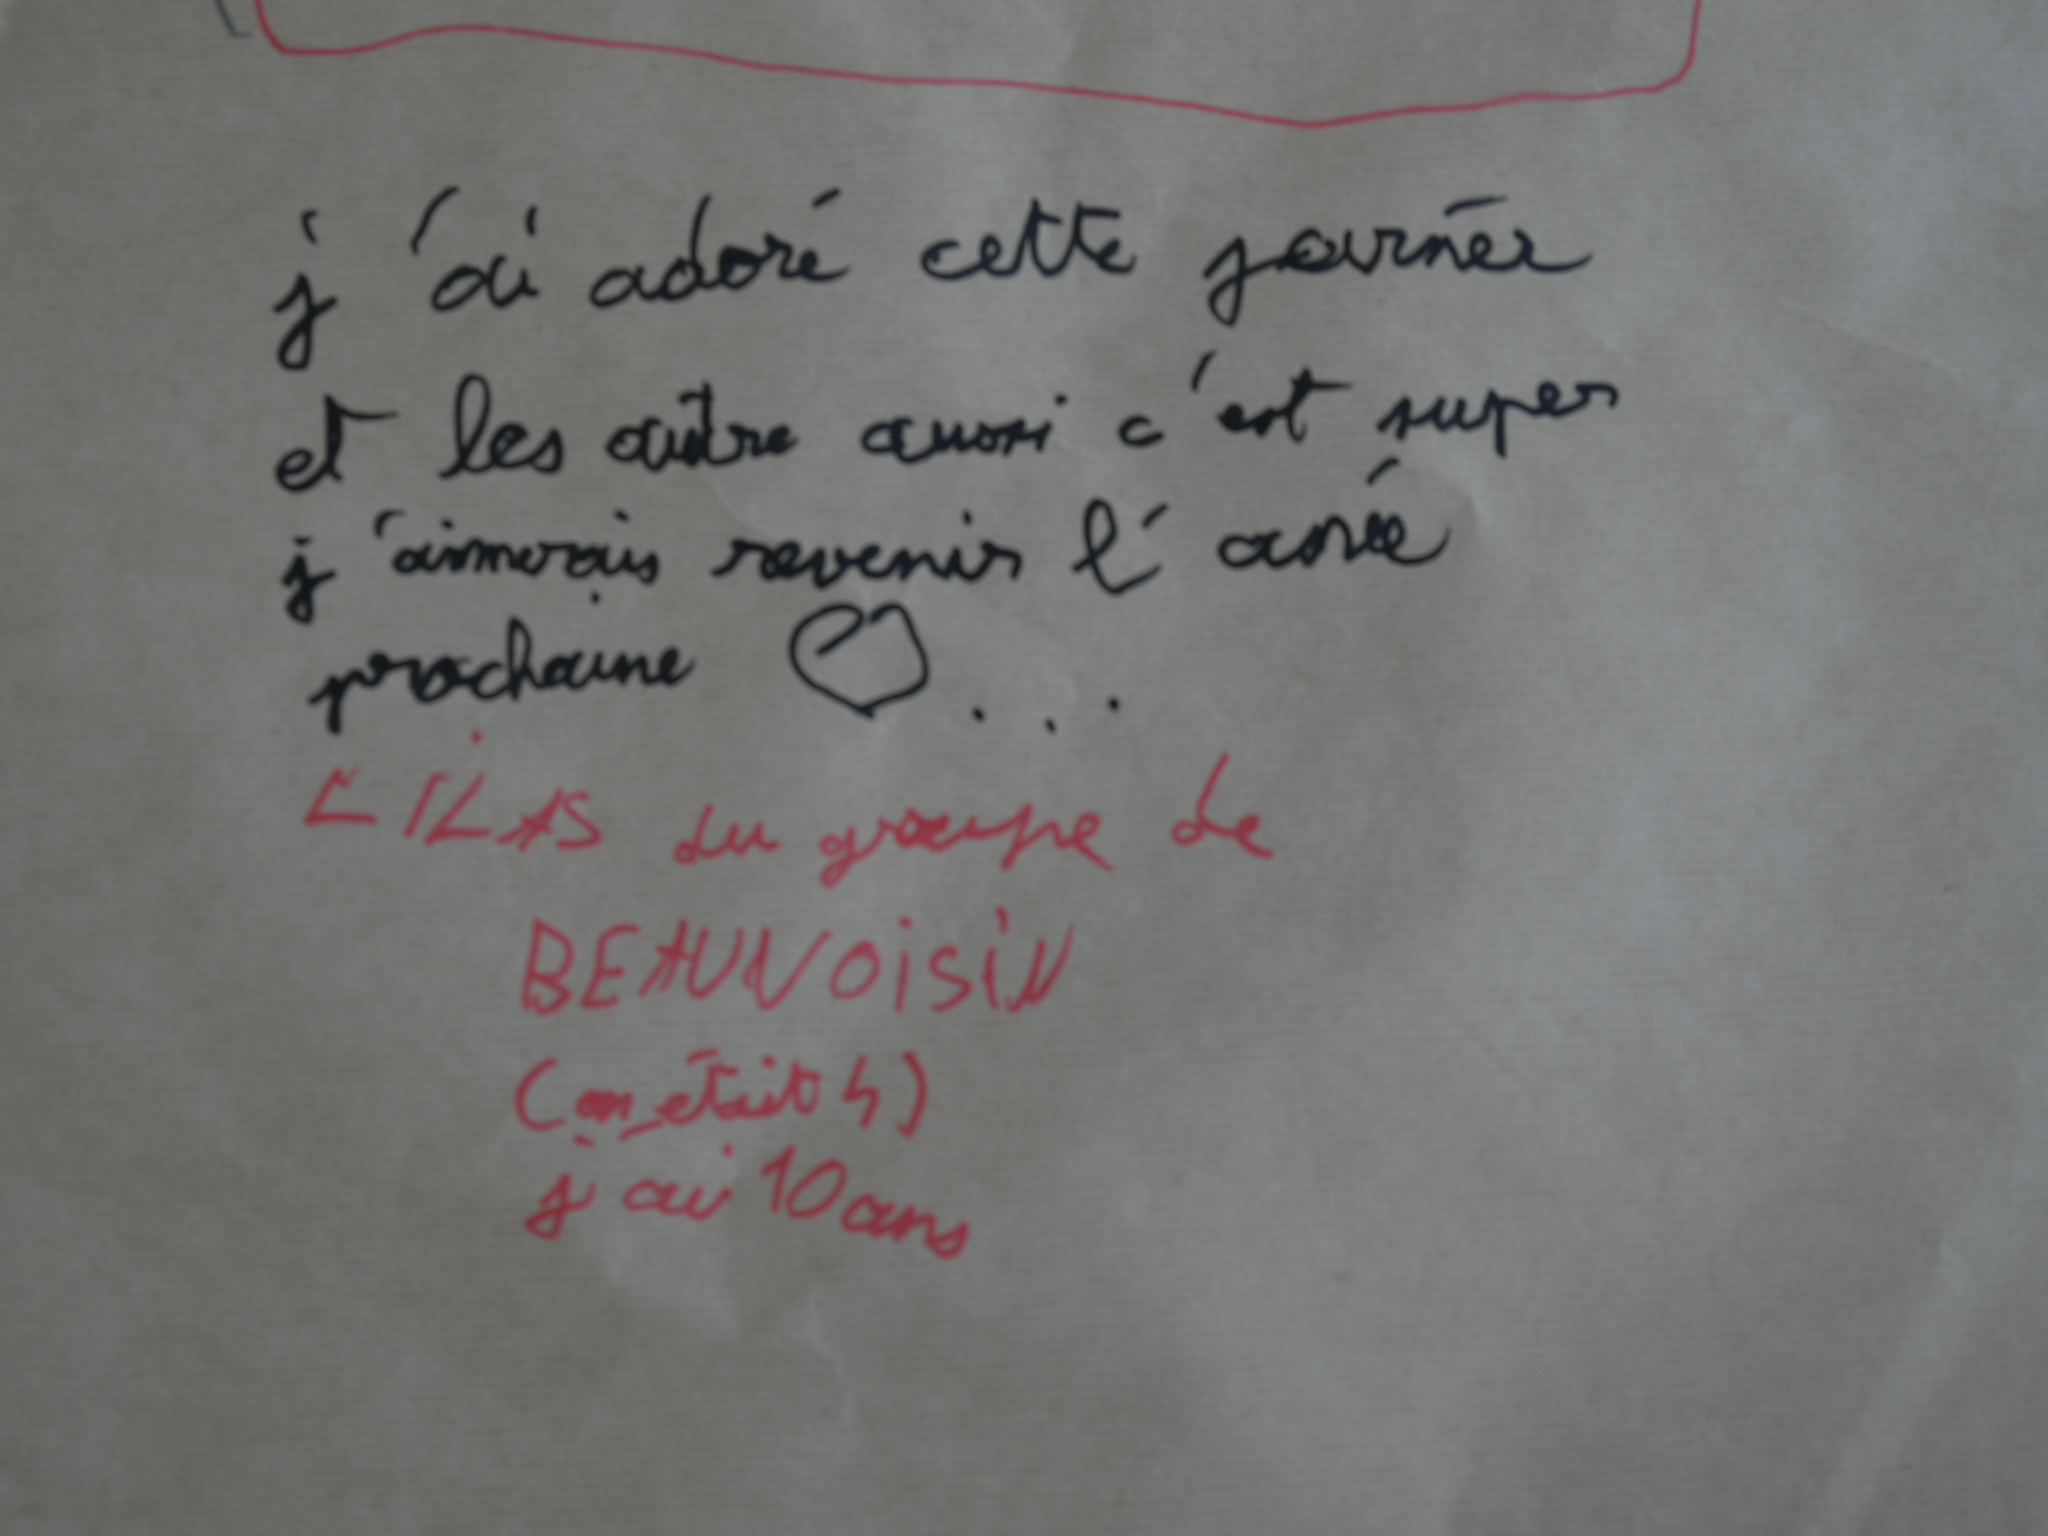 j'ai adoré cette journée
et les autre aussi c'est super
j'aimerais revenir l'anée
prochaine ...
LILAS du groupe de
BEAUVOiSiN
(on était 4)
j'ai 10 ans